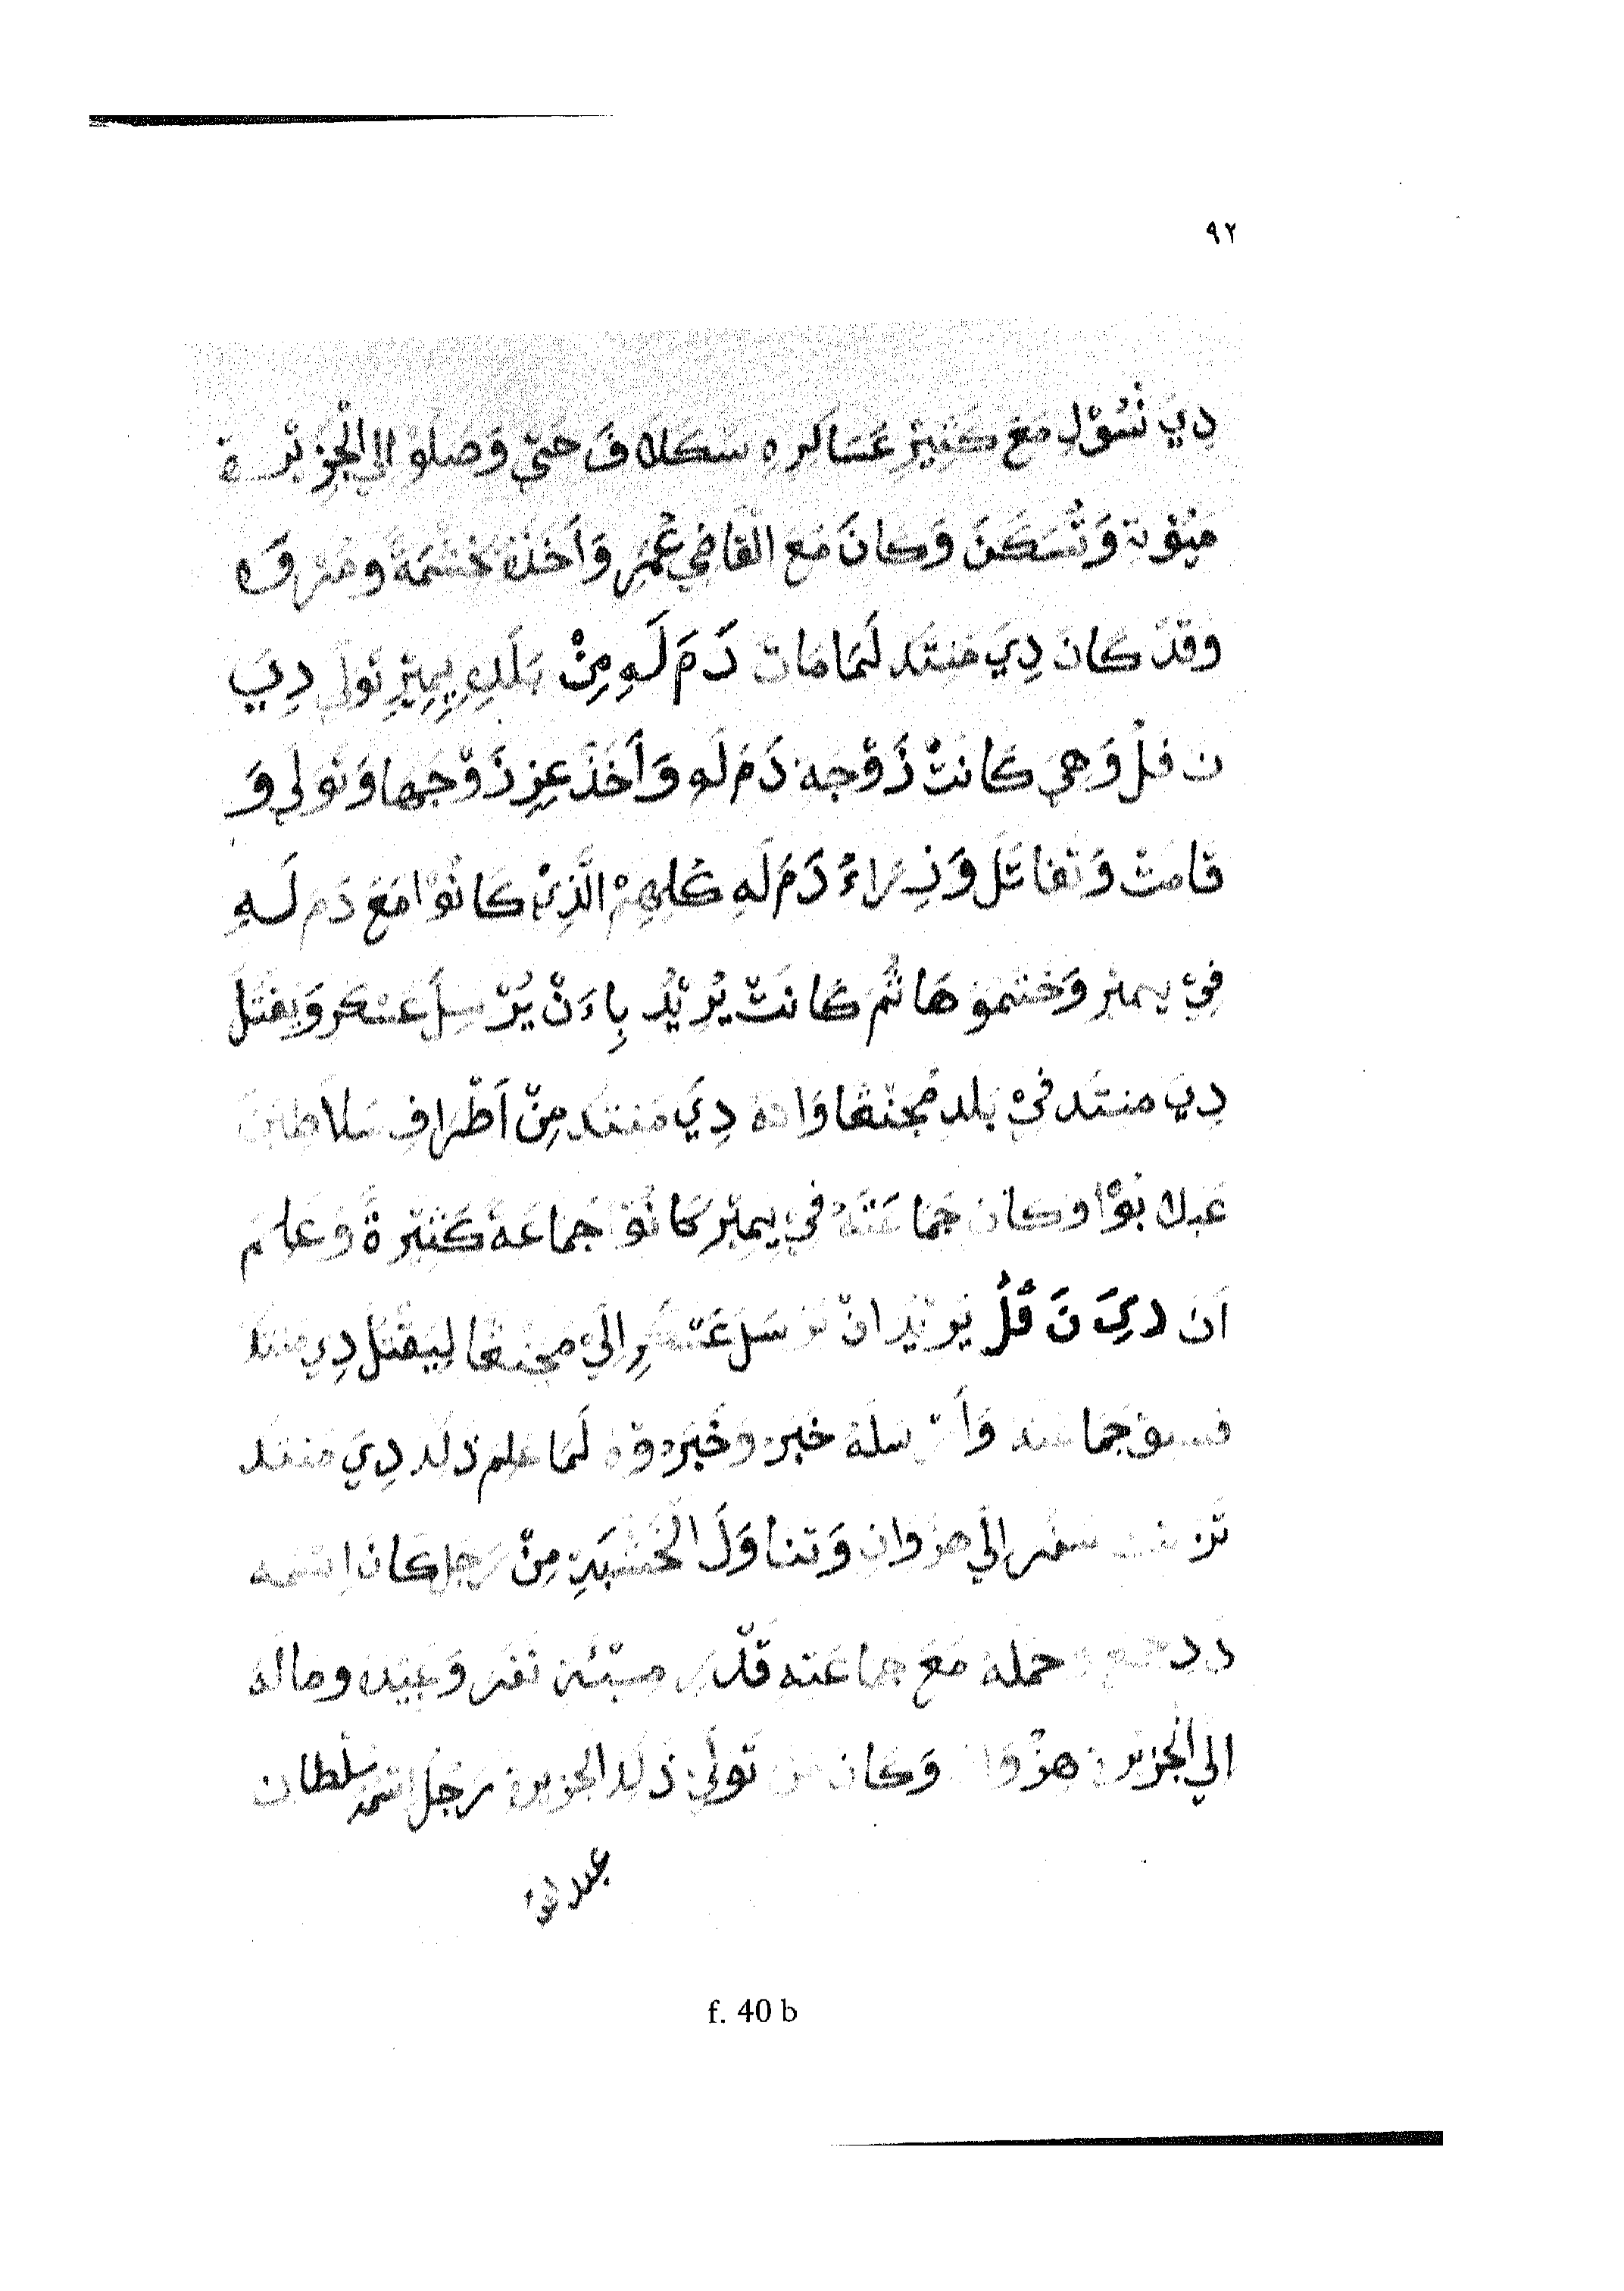 ٩٢
دِيَ نْسُوْلِ مَعَ كَثِيْرِ عَسَاكَرِهِ سَكَلَافَ حَتَّي وَصَلُوْ اِلي الْجَزِيْرَة
مَيُوْتَة وَتُسَكَنَ وَكَانَ مَعَ القَاضِي عُمَر وَاَخَذَهُ خَتَمَهُ
وَقَدْ كَانَ دِيَ مَنتَد لَمَا مَاتَ دَمَ لَهِ مِنْ بَلَدِ بِيمِيْرِ تَوَلَي دِيَ
نَ فُلْ وَهِيَ كَانَتْ زَوْجَة دَمَ لَهِ وَاَخَذَ عِزِ زَوْجَهَا وَتَوَلَي وَ
قَامَتْ وَتَقَاتَل وَزِرَاءُ دَمَ لَهِ كُلِهِمْ الَّذِيْ كَانُوْا مَعَ دَمَ لَهِ
فِيْ بِيمِيْر وَخَتَمُوْهَا ثُمَ كَانَتْ يُرِيْدُ بِاءَنْ يُرْسِلَ عَسْكَر وَيَقْتَلَ
دِيَ مَنتَد فِيْ بَلَدِ مُجَنْقَا وَاَنَهُ دِيَ مَنتَد مِنْ اَطْرَافِ سَلَاطِيْنَ
عَبْلَا بُوْا وَكَانَ جَمَاعَتَهُ فِيْ بِيمِيْر كَانُوْا جَمَاعَةً كَثِيْرَةً وَعَلِمَ
اَنَ دِيَ نَ فُلُ يُرِيْدَ اَنْ يُرْسَلَ عَسْكَرِ اِلَيْ مَجَنْقَا لِيَقْتَل دِيَ مَنتَد
جَمَاعَتَه وَاَرْسَلَهُ خَبَرَ وَخَبَرُوْهُ لَمَا عَلِم ذَلِكَ دِيَ مَنتَد
سَفَر اِلَي هِزْوَانِ وَتَنَاوَلَ الْخَشَبَةِ مِنْ رَجُل كَانَ اِسْمُه
حَمَلَهُ مَعَ جَمَاعَتِهِ قَدْرِ مِيْئَة نَفَر وَعَبِيْدَهُ وَمَالَهُ
اِلي الْجَزِيْرَة هِزْوَانِ وَكَانَ مَنْ تَوَلَي ذَلِكَ الْجَزِيرَة رَجُل اِسْمُهُ سُلْطَان
f. 40 b